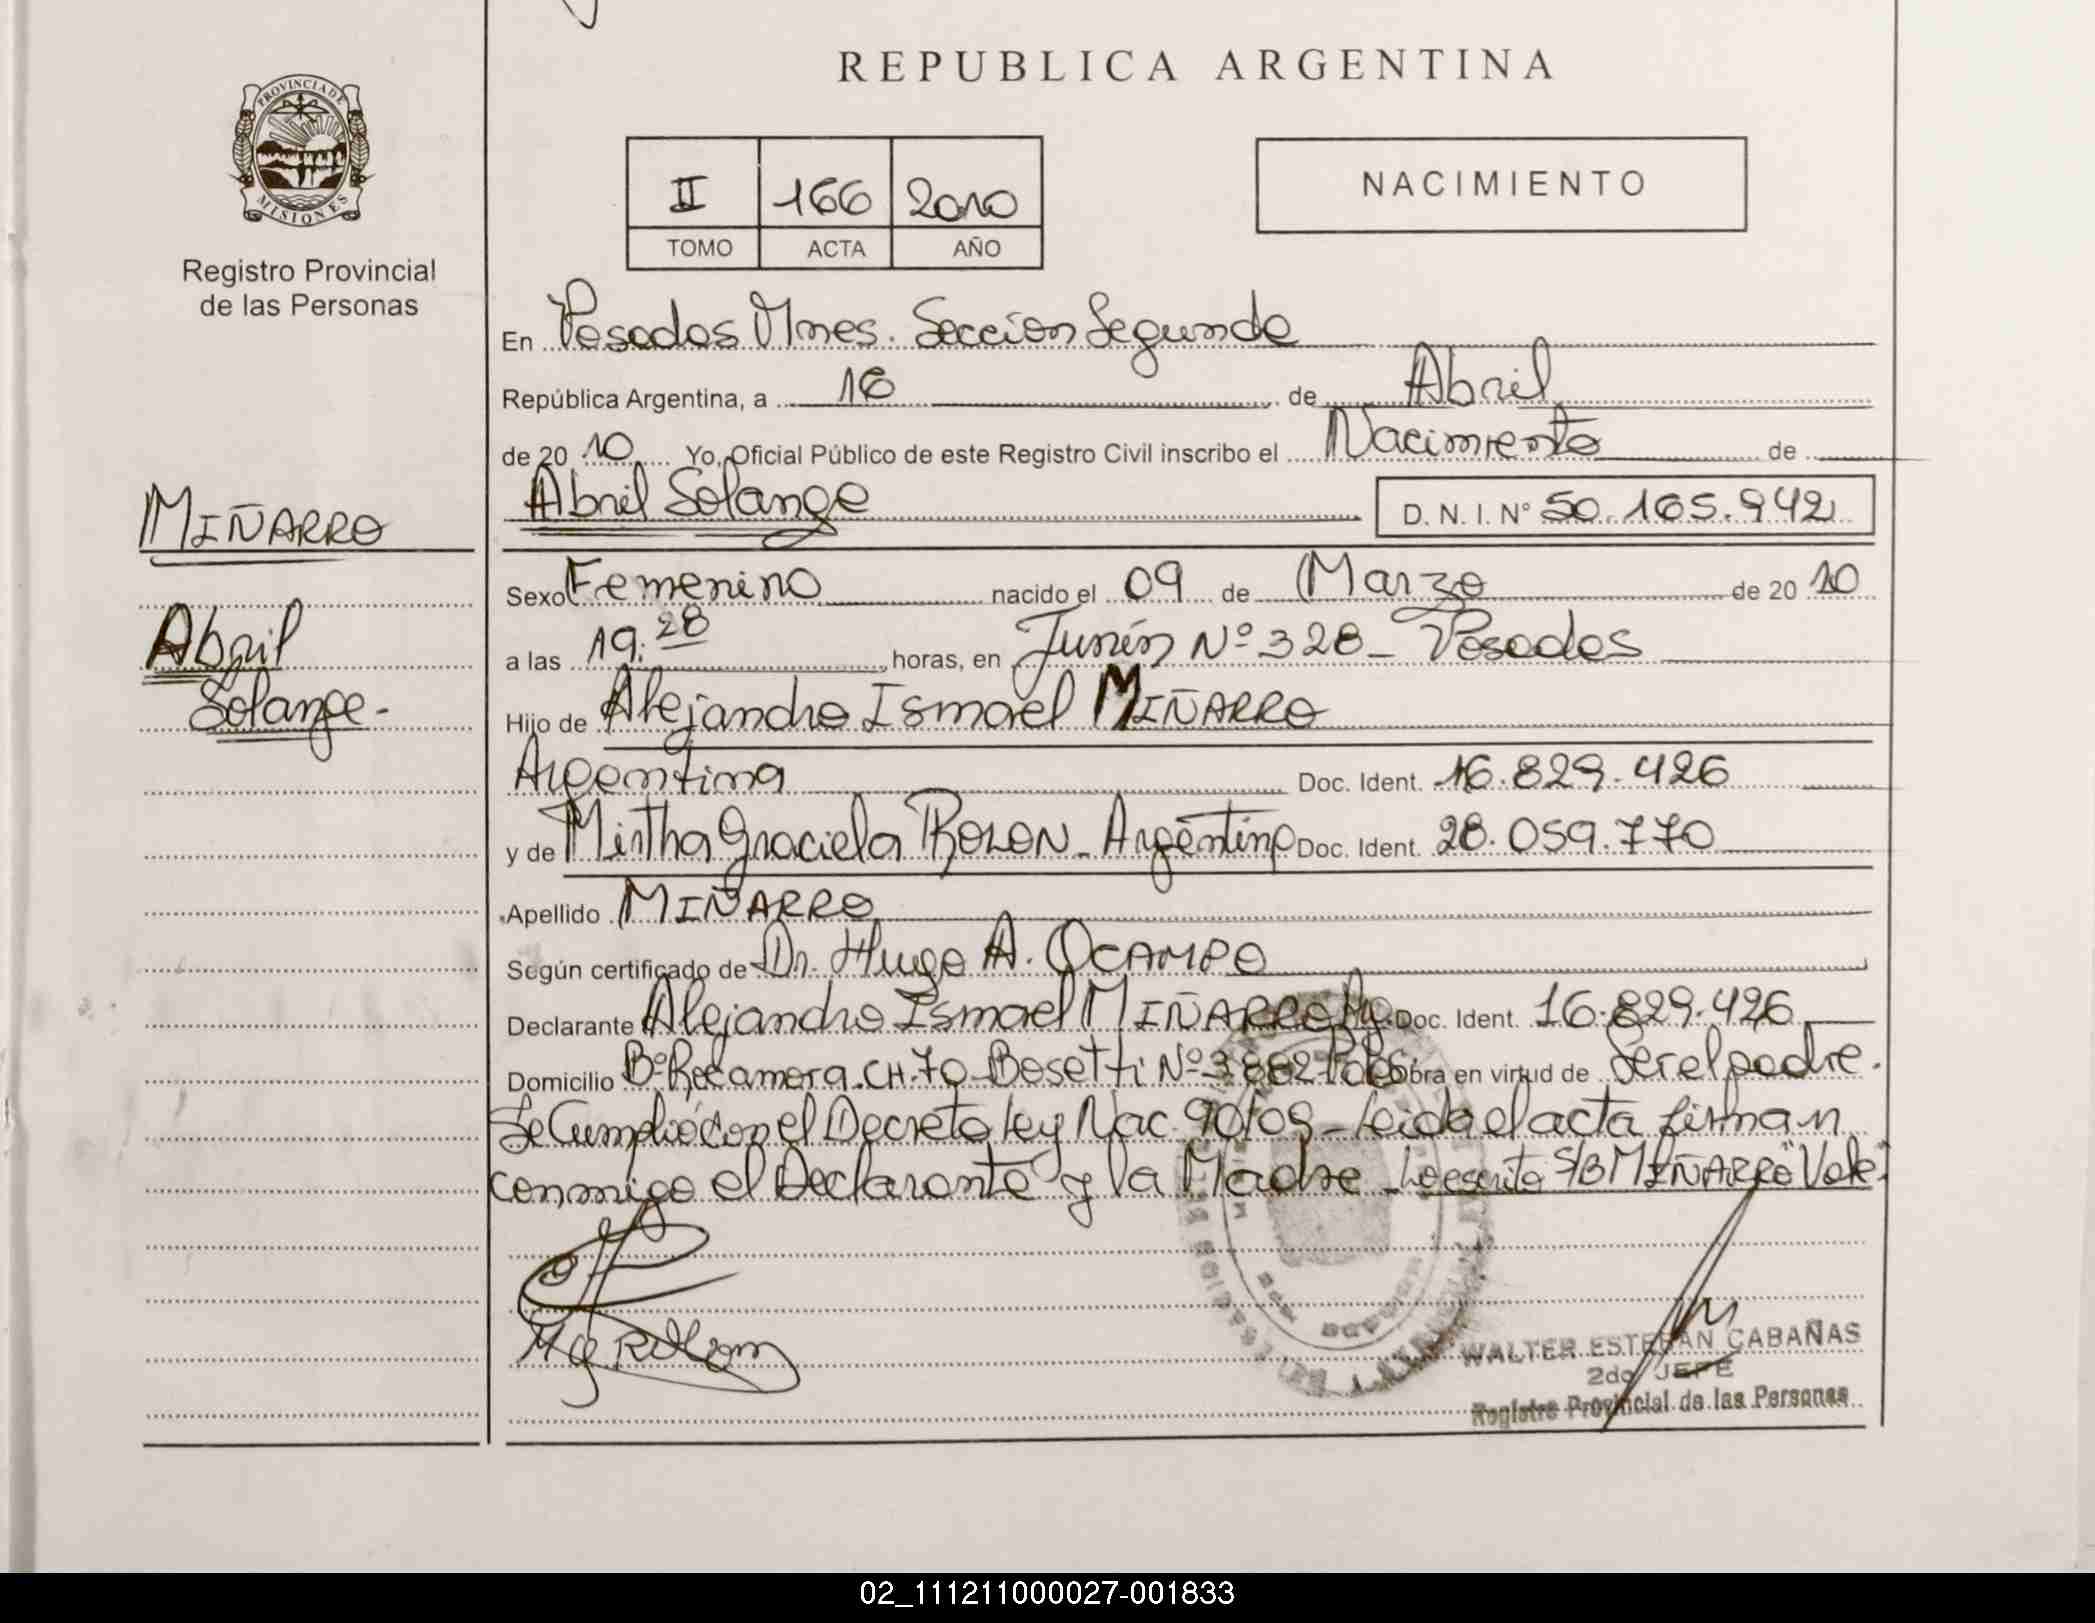 REPUBLICA ARGENTINA
PROVINCIA DE
MISIONES
Registro Provincial
de las Personas
II 166 2010
TOMO ACTA AÑO
NACIMIENTO
En Posadas Mnes. Sección Segunda
República Argentina, a 16 de Abril
de 2010 Yo, Oficial Público de este Registro Civil inscribo el Nacimiento de
Abril Solange D. N. I. N° 50.165.942
MIÑARRO
Abril
Solange.-
Sexo Femenino nacido el 09 de Marzo de 2010
a las 19:28 horas, en Junín Nº 328 - Posadas
Hijo de Alejandro Ismael MIÑARRO
Argentina Doc. Ident. 16.829.426
y de Mirtha Graciela ROLON - Argentina Doc. Ident. 28.059.770
Apellido MIÑARRO
Según certificado de Dr. Hugo A. OCAMPO
Declarante Alejandro Ismael MIÑARRO Doc. Ident. 16.829.426
Domicilio Bº Rocamora. CH. 70 - Bosetti Nº 3882 Pdas Obra en virtud de Ser el padre.
Se Cumplió con el Decreto Ley Nac. 90/09 - Leida el acta firman
conmigo el Declarante y la Madre - Lo escrito S/B MIÑARRO "Vale".
WALTER ESTEBAN CABAÑAS
2do JEFE
Registro Provincial de las Personas
02_111211000027-001833